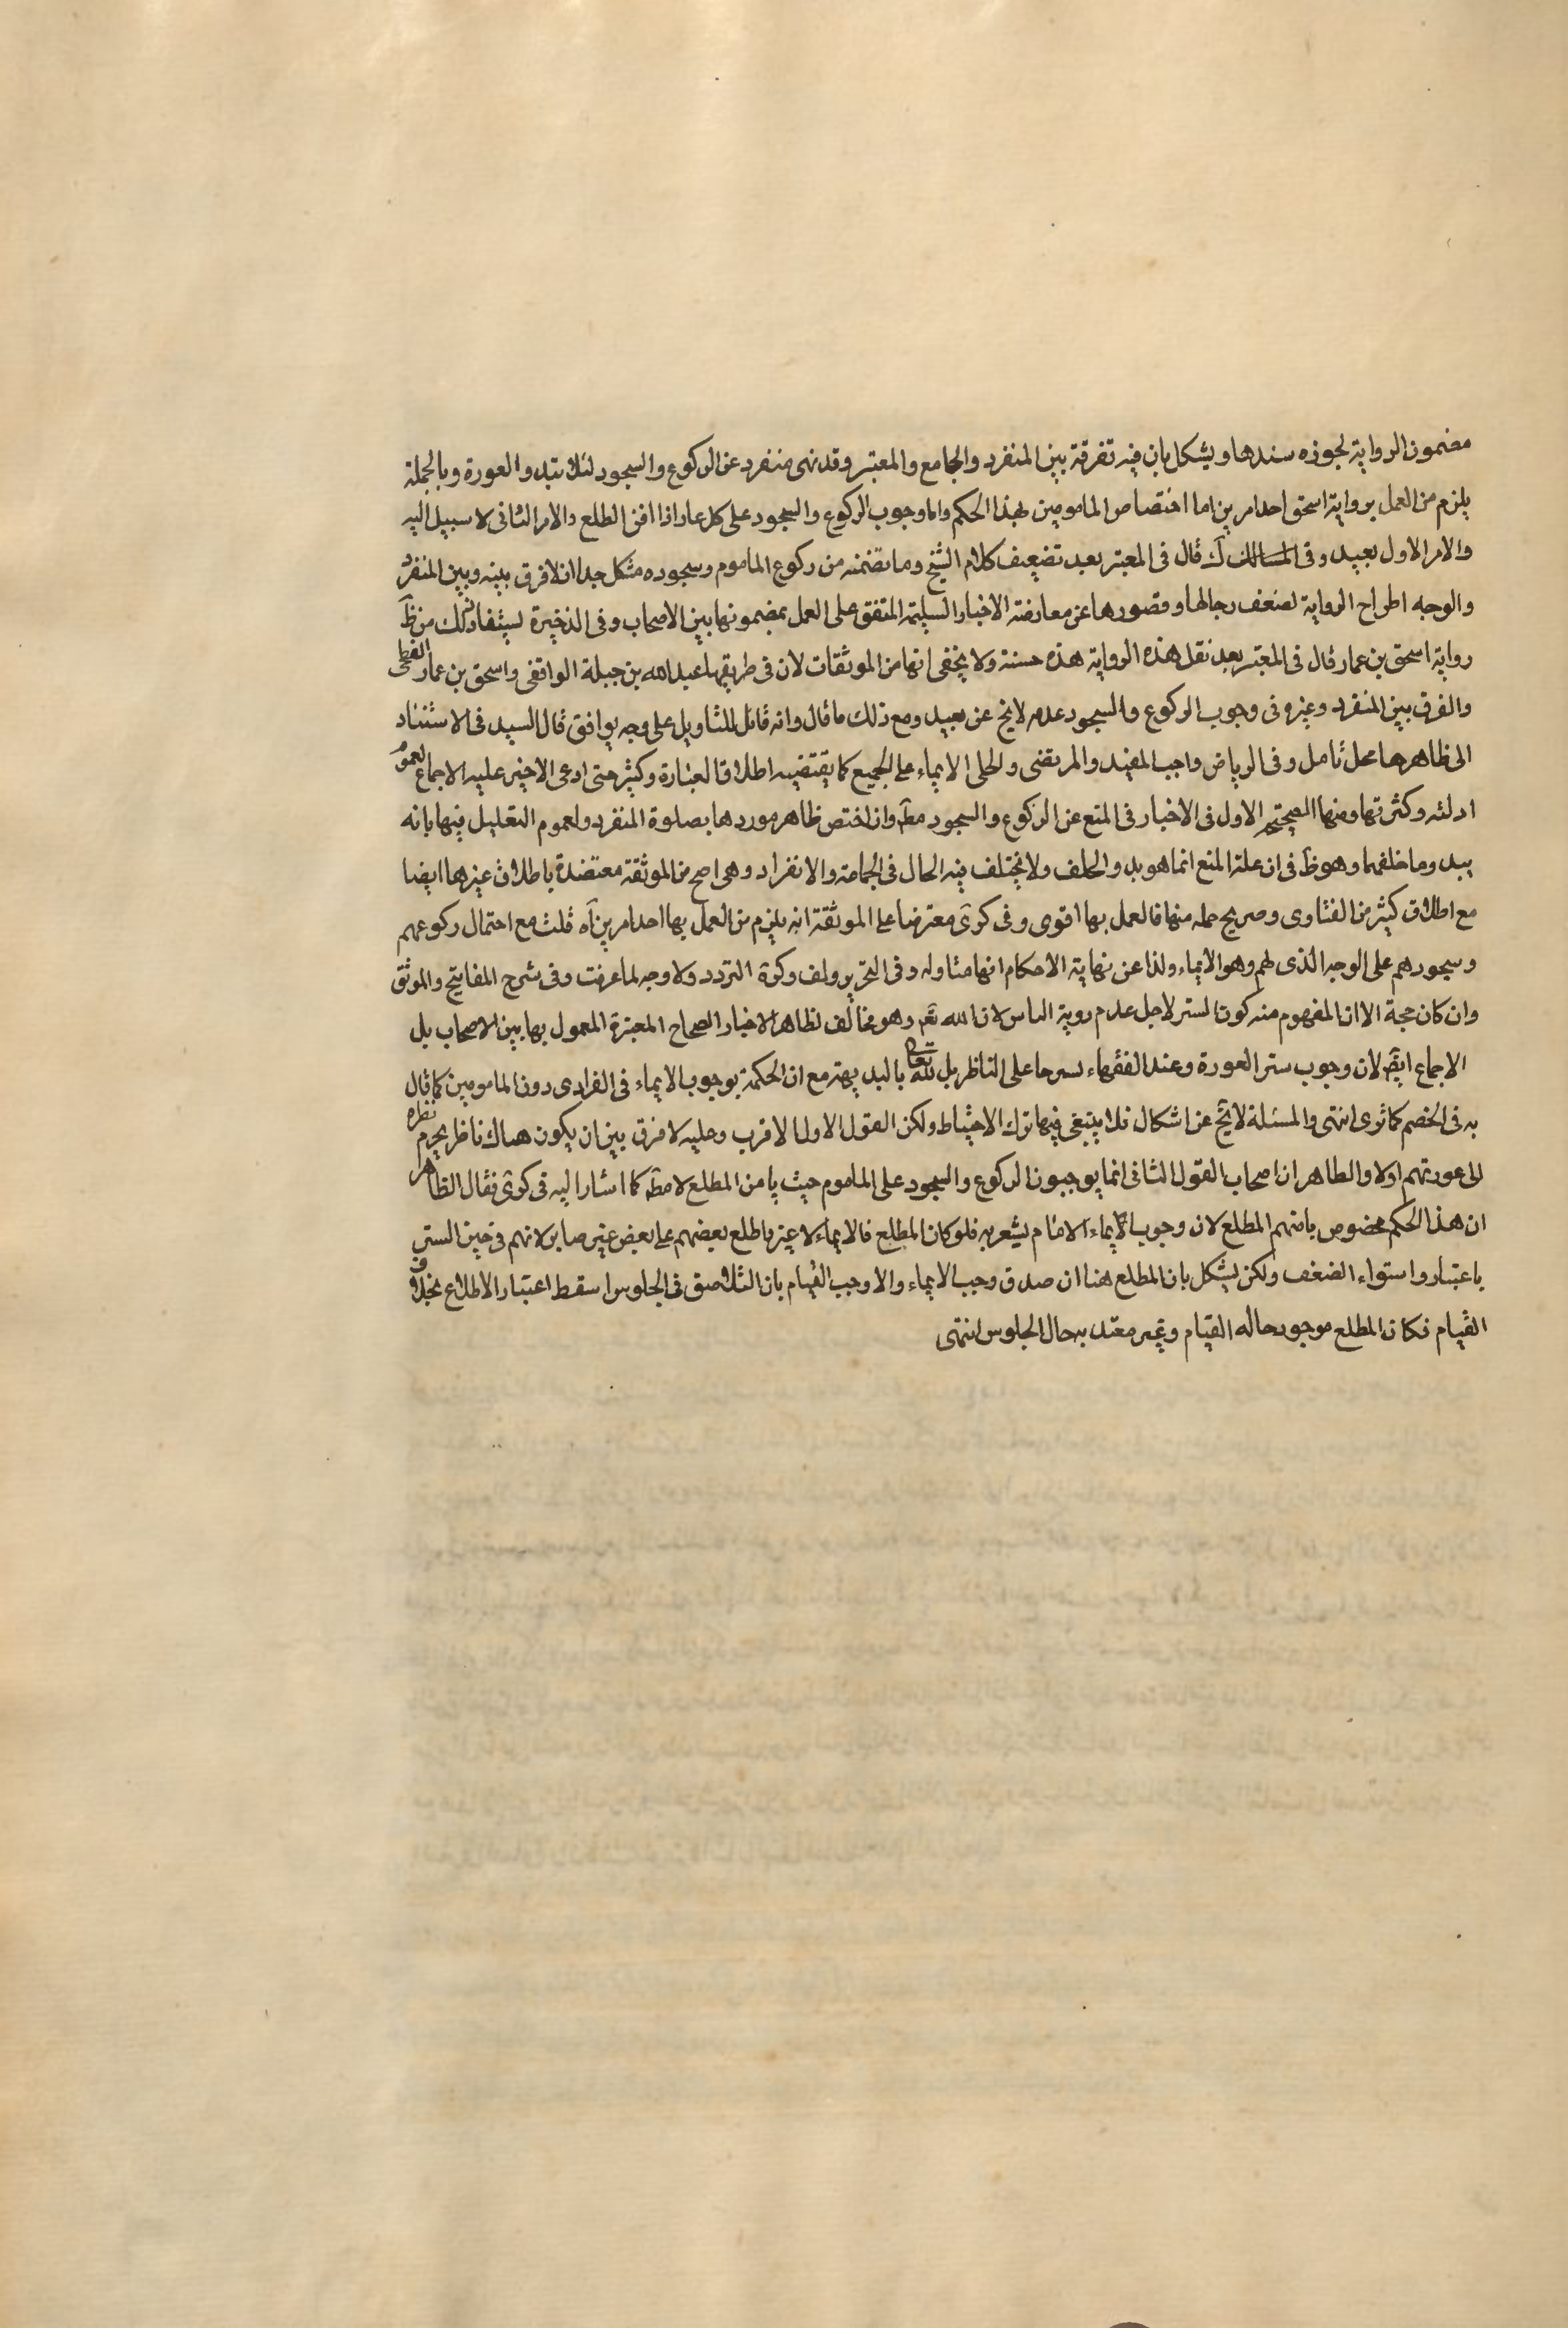 مضمون الرواية لجوزه سندها ويشكل بان فيه تفرقة بين المنفرد والجامع والمعتبر وقد نهى منفرد عن الركوع والسجود لئلا تبدو العورة وبالجملة
يلزم من العمل برواية اسحق احد امرين اما اختصاص المامومين بهذا الحكم واما وجوب الركوع والسجود على كل عار اذا امن المطلع والامر الثانى لا سبيل اليه
والامر الاول بعيد وفى قال فى المعتبر بعد تضعيف كلام الشيخ وما تضمنه من ركوع الماموم وسجوده مشكل جدا اذ لا فرق بينه وبين المنفرد
والوجه اطراح الرواية لضعف رجالها وقصورها عن معارضة الاخبار السليمة المتفق على العمل بمضمونها بين الاصحاب وفى الذخيرة يستفاد ذلك من ظ
رواية اسحق بن عمار قال فى المعتبر بعد نقل هذه الرواية هذه حسنة ولا يخفى انها من الموثقات لان فى طريقها عبد الله بن جبلة الواقفى واسحق بن عمار الفطحى
والفرق بين المنفرد وغيره فى وجوب الركوع والسجود عدمه لا يخ عن بعيد ومع ذلك ما قال وانه قائل للتاويل على وجه يوافق قال السيد فى الاستناد
الى ظاهرها محل تامل وفى الرياض واجب المفيد والمرتضى والحلى الايماء على الجميع كما يقتضيه اطلاق العبارة وكثير حتى ادعى الاخير عليه الاجماع لعموم
ادلته وكثرتها ومنها الاول فى الاخبار فى المنع عن الركوع والسجود مط وان اختص ظاهر موردها بصلوة المنفرد ولعموم التعليل فيها بانه
يبد وما خلفهما وهو ظ فى ان علة المنع انما هو بد والخلف ولا يختلف فيه الحال فى الجماعة والانفراد وهى اصح من الموثقة معتضدة باطلاق غيرها ايضا
مع اطلاق كثير من الفتاوى وصريح جمله منها فالعمل بها اقوى وفى كرى معترضا على الموثقة انه يلزم من العمل بها احد امرين آه قلت مع احتمال ركوعهم
وسجودهم على الوجه الذى لهم وهو الايماء ولذا عن نهاية الاحكام انها متاوله وفى التحرير ولف وكرة التردد ولا وجه لما عرفت وفى شرح المفاتيح والموثق
وان كان حجة الا ان المفهوم منه كون الستر لاجل عدم روية الناس لا ان الله تع وهو مخالف لظاهر الاخبار الصحاح المعتبرة المعمول بها بين الاصحاب بل
الاجماع ايض لان وجوب ستر العورة وعند الفقهاء على الناظر بل لله تعالى بالبديهة مع ان الحكمة بوجوب الايماء فى الفرادى دون المامومين كما قال
به فى الخصم كما ترى انتهى والمسئلة لا يخ عن اشكال فلا ينبغى فيها ترك الاحتياط ولكن القول الاول الاقرب وعليه لا فرق بين ان يكون هناك ناظر يحرم نظره
الى عورتهم اولا والظاهر ان اصحاب القول الثانى انما يوجبون الركوع والسجود على الماموم حيث يامن المطلع لا مط كما اشار اليه فى كرى فقال الظاهر
ان هذا الحكم مخصوص بامنهم المطلع لان وجوب الايماء الامام يشعر به فلو كان المطلع فالايماء لا غير باطلع بعضهم على بعض غير صاير لانهم فى حين الستر
باعتبار واستواء الضعف ولكن يشكل بان المطلع هنا ان صدق وجب الايماء والا وجب القيام بان التلاصق فى الجلوس اسقط اعتبار الاطلاع بخلاف
القيام فكان المطلع موجود حاله القيام وغير معتد به حال الجلوس انتهى